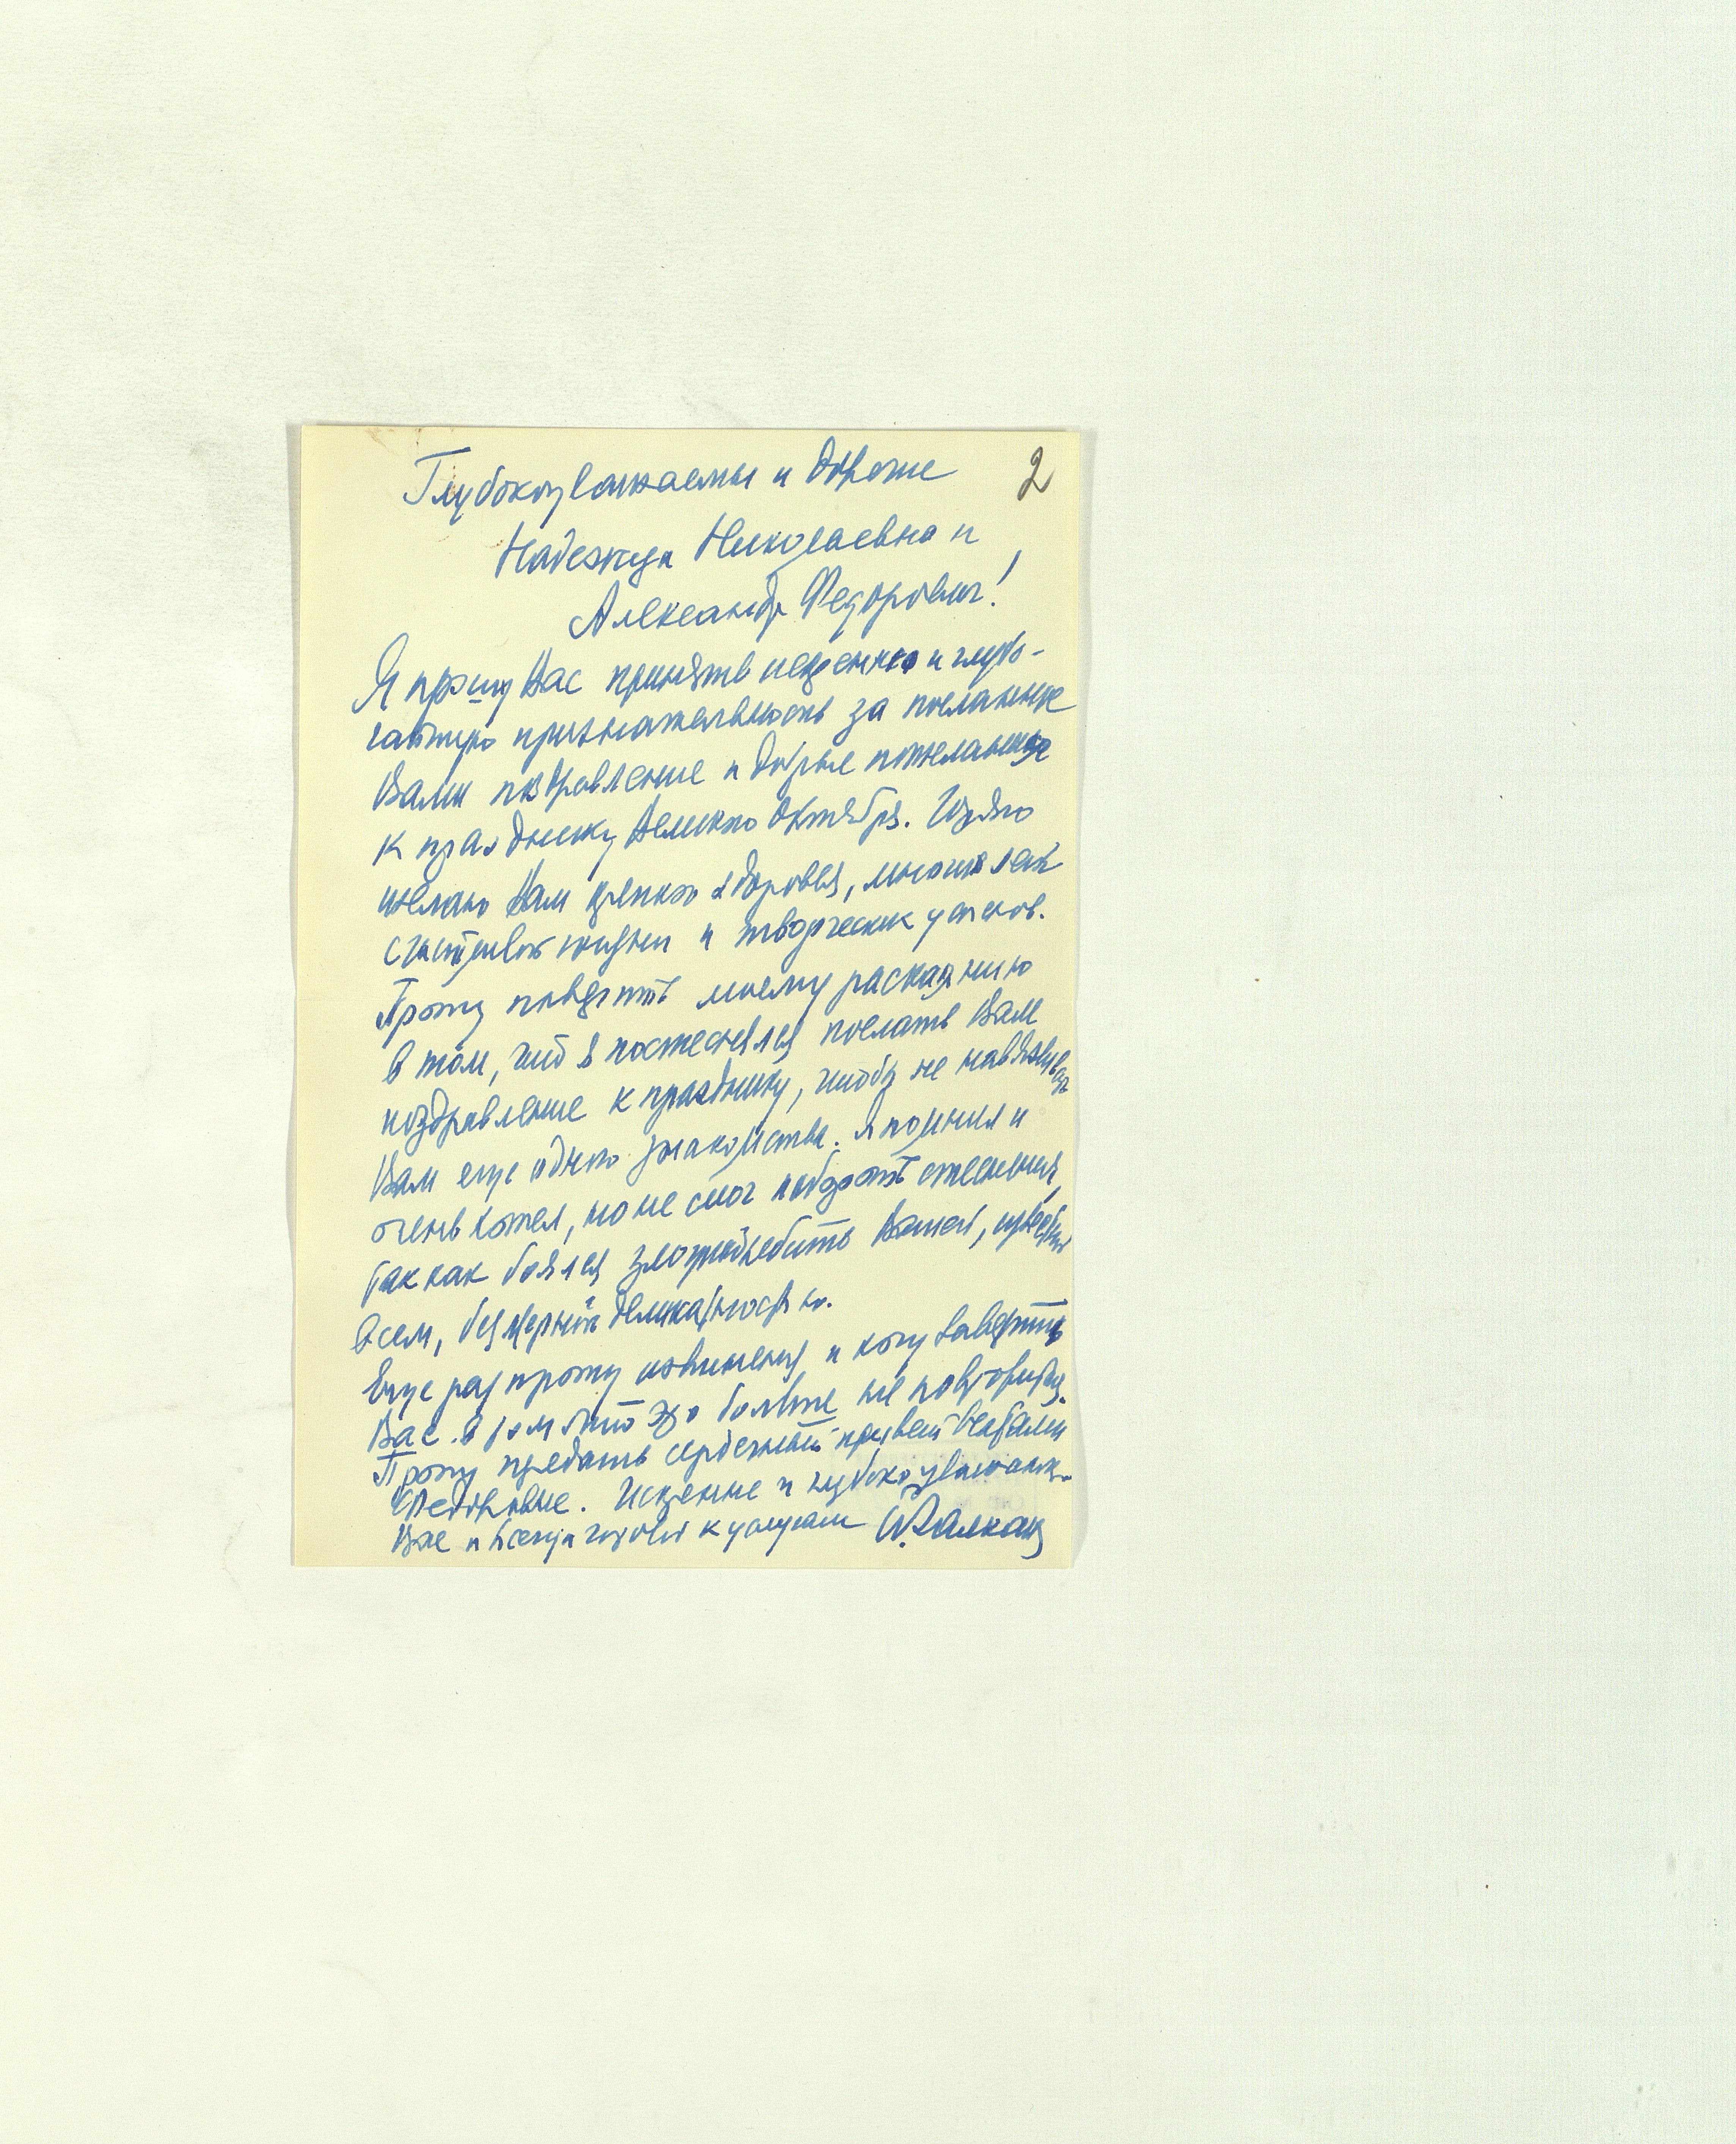 2
Глубокоуважаемые и дорогие
Надежда Николаевна и
Александр Федорович!
Я прошу Вас принять искреннюю и глубо-
чайшую признательность за посланные
Вами поздравление и добрые пожелания
к празднику Великого Октября. Горячо
желаю Вам крепкого здоровья, многих лет
счастливой жизни и творческих успехов.
Прошу поверить моему раскаянию
в том, что я постеснялся послать Вам
поздравление к празднику, чтобы не навязывать
Вам еще одного знакомства. Я помнил и
очень хотел, но не смог побороть стеснения,
так как боялся злоупотребить Вашей, известной
всем, безмерной деликатностью.
Еще раз прошу извинения и хочу заверить
Вас в том что это больше не повторится.
Прошу передать сердечный привет
Федоровне. Искренне и глубоко уважающий
Вас и всегда готовый к услугам